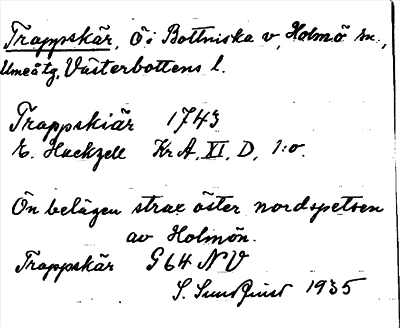 Trappskär, Ö i Bottniska v, Holmö sn.,
Umeå tg, Västerbottens l.
Trappskiär 1743
E. Hackzell KrA, XI, D, 1:o.
Ön belägen strax öster nordspetsen
av Holmön.
Trappskär G64 NV
S. Sundqvist 1935